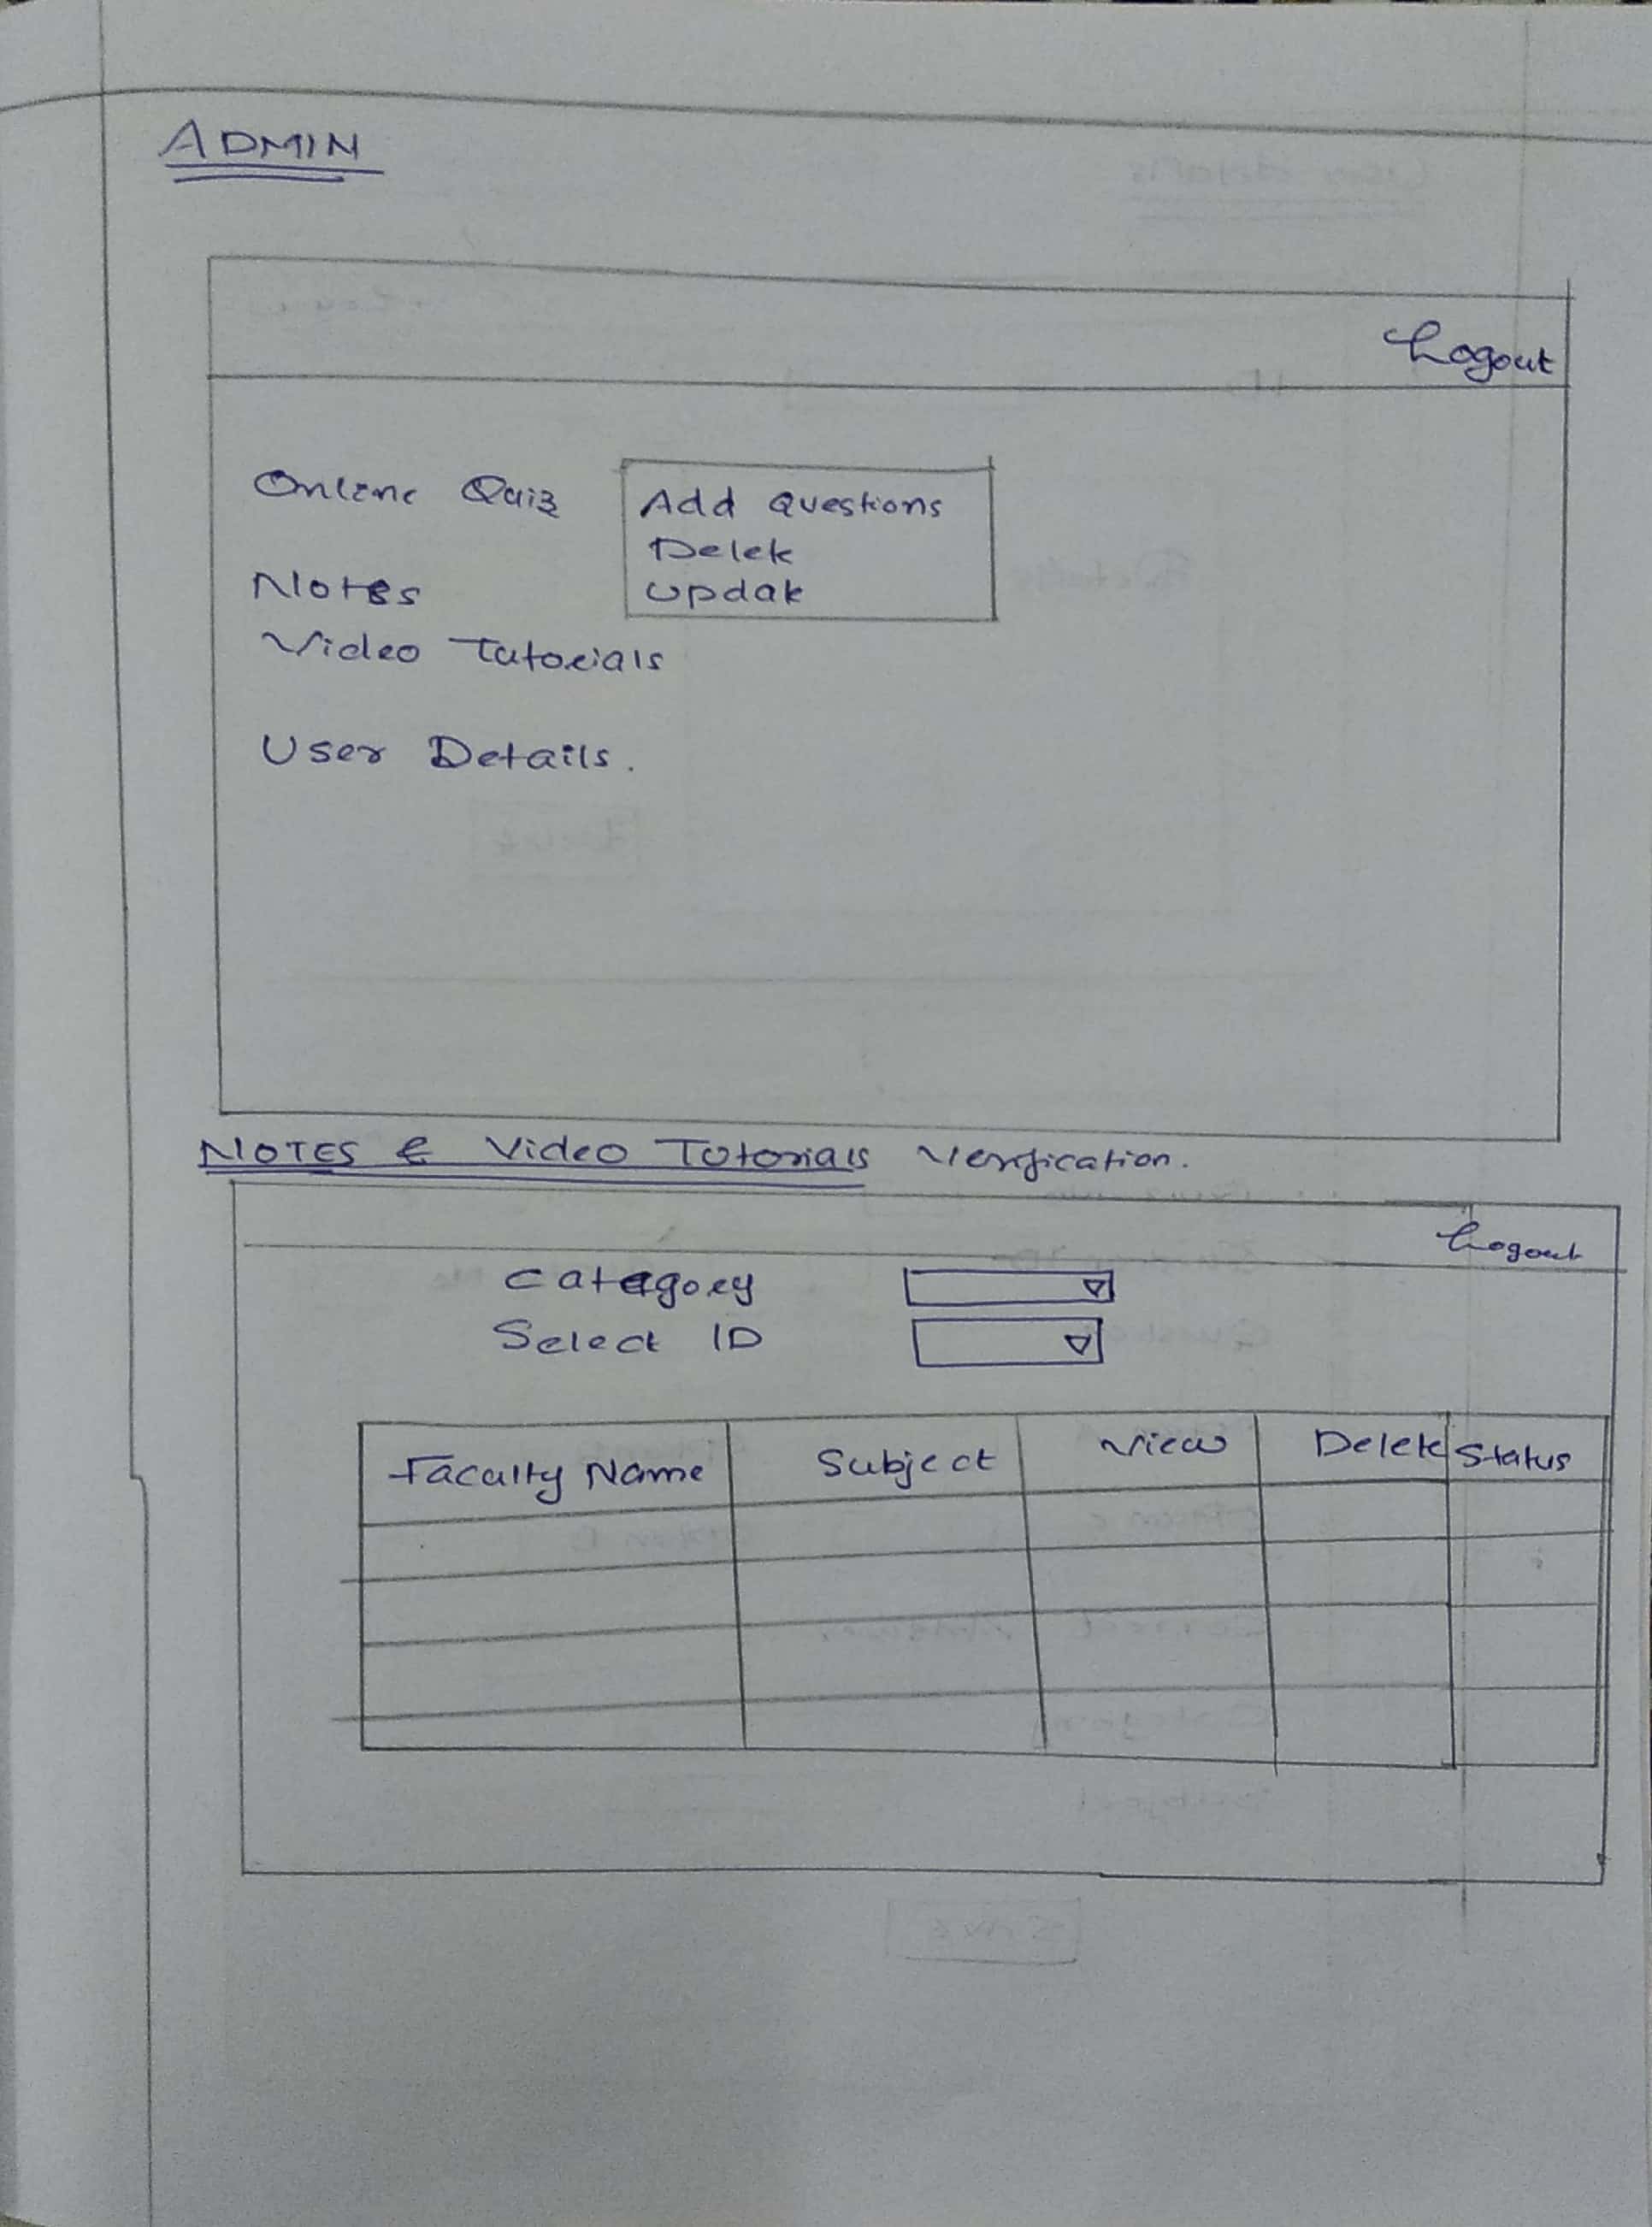 ADMIN
Logout
Online Quiz
Add Questions
Delete
Update
Notes
Video Tutorials
User Details.
NOTES & Video Tutorials Verification.
Logout
Category
Select ID
Faculty Name Subject View Delete Status